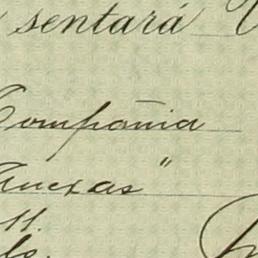 sentará
Compañia
Anexas"
11.